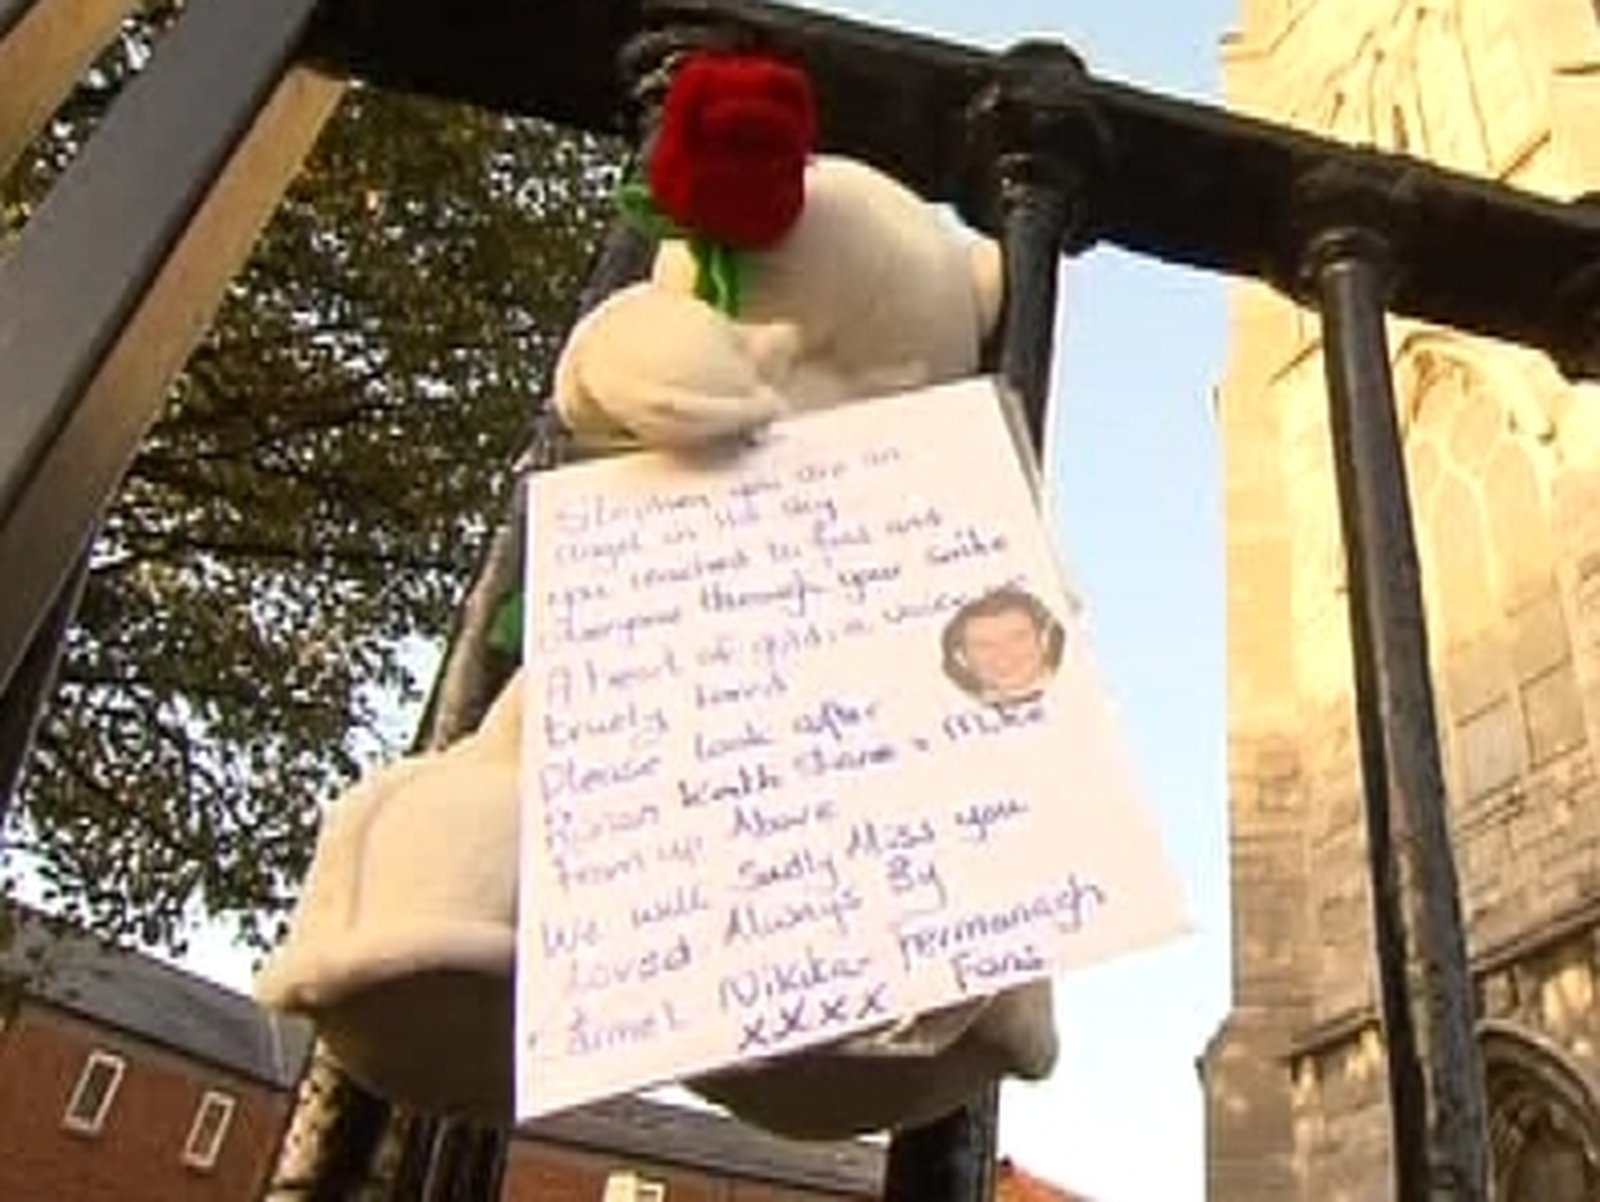 Stephen you are an
angel in the sky
you reached to fans and
everyone through your smile
A heart of gold, a voice
truely loved
Please look after
Ronan Keith Shane + Mike
from up Above
We will sadly Miss you
Loved Always By
Nikita - Fermanagh
xxxx Fans